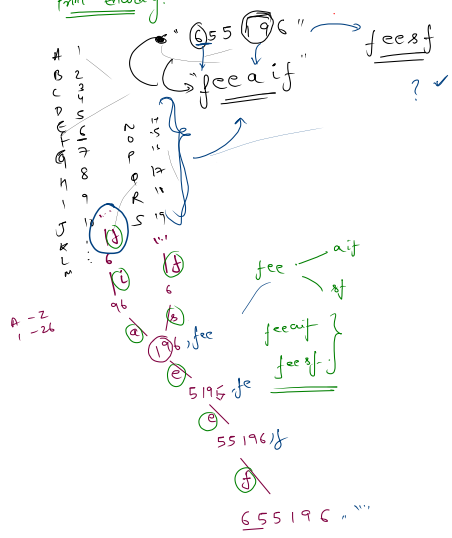 Print encoding.
"655196" → feesf
"feeaif"
? ✓
A 1
B 2
C 3
D 4
E 5
F 6
G 7
H 8
I 9
J 10
K
L
M
N 14
O 15
P 16
Q 17
R 18
S 19
A - 2
1 - 26
f
6
i
96
a
f
6
s
196, fee
e
5196, fe
e
55196, f
f
655196, ""
fee
aif
sf
feeaif
feesf